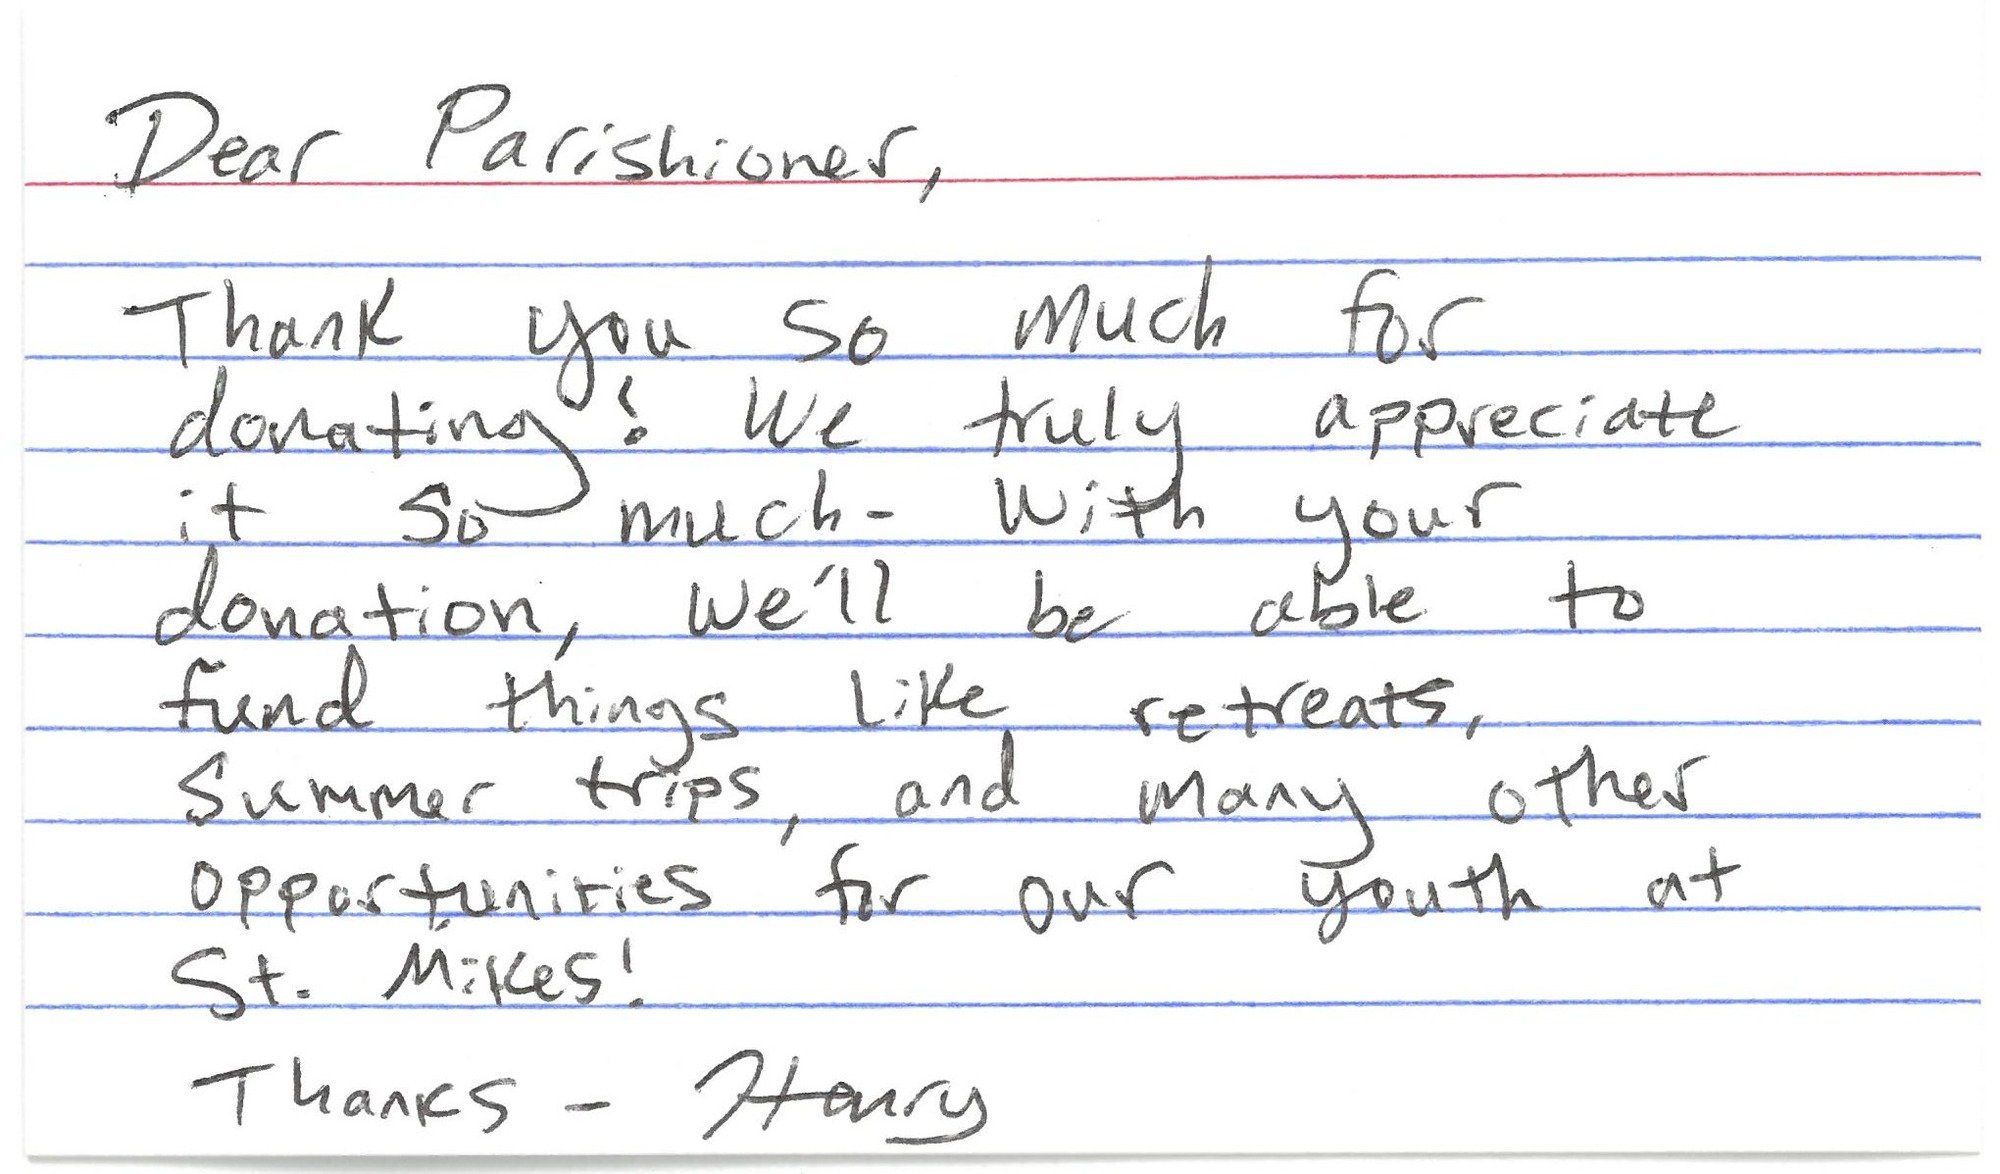 Dear Parishioner,
Thank you so much for
donating! We truly appreciate
it so much- With your
donation, we'll be able to
fund things like retreats,
Summer trips, and many other
opportunities for our youth at
St. Mikes!
Thanks - Henry